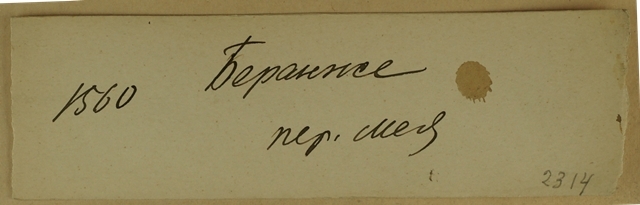 1560 Беранже
пер. Мея
2314